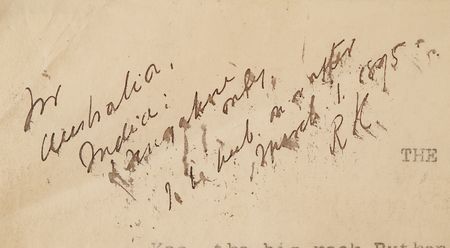 For
Australia,
India:
Singapore
only,
To be pub. on or after
March 1. 1895
RK.
THE
Kaa, the big rock Python